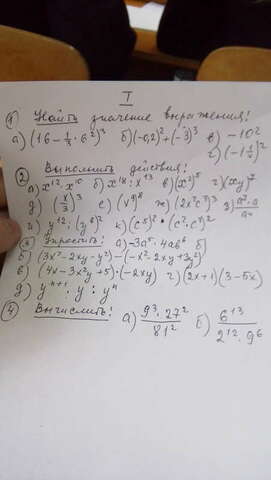 I
① Найти значение выражения:
а) (16 - 1/3 · 6²)³ б) (-0,2)² + (-3)³ в) -10²
г) (-1 1/2)²
② Выполнить действия:
а) x¹² · x¹⁰ б) x¹⁸ : x¹³ в) (x²)⁵ г) (xy)⁷
д) (x/3)³ е) (v⁹)⁸ ж) (2x²c⁷)³
и) y¹² : (y⁶)² к) (c⁵)² · (c² · c⁷)²
Упростить: а) -3a⁵ · 4ab⁶ б)
б) (3x² - 2xy - y²) - (-x² - 2xy + 3y²)
в) (4x - 3x²y + 5) · (-2xy) г) (2x + 1)(3 - 5x)
д) yⁿ⁺¹ : y : yⁿ
④ Вычислить: а) 9³ · 27² / 81² б) 6¹³ / 2¹² · 9⁶